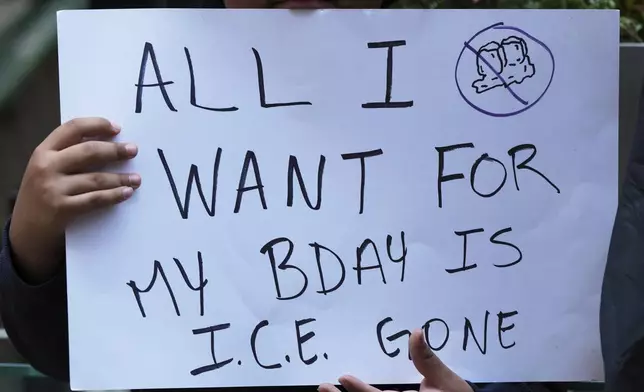 ALL I
WANT FOR
MY BDAY IS
I.C.E. GONE